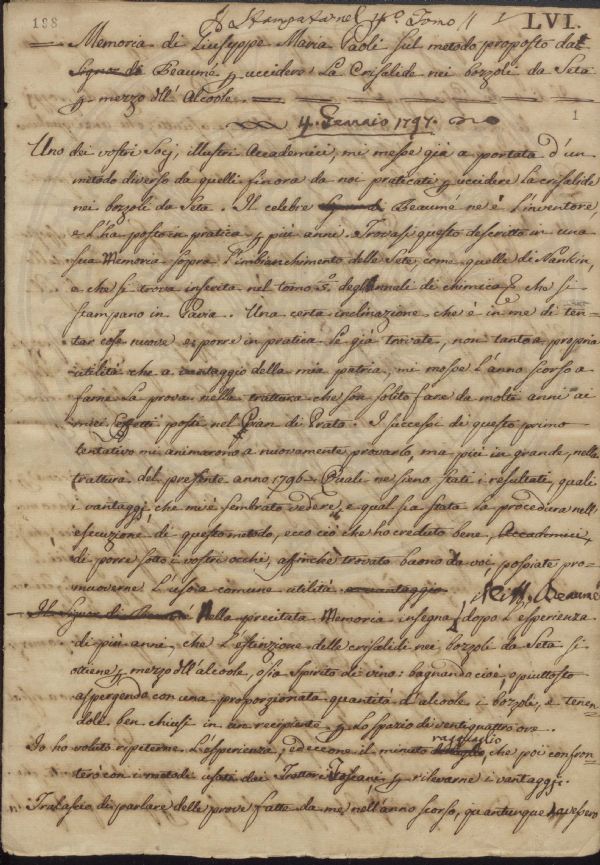 188 È Stampata nel 4º Tomo LVI.
Memoria di Giuseppe Maria Paoli sul metodo proposto dal
Signor di Beaumé p uccidere La Crisalide nei bozzoli da Seta
p mezzo dell' Alcoole.
4. Gennaio 1797.
1
Uno dei vostri Socj, illustri Accademici, mi messe già a portata d'un
metodo diverso da quelli finora da noi praticati p uccidere la crisalide
nei bozzoli da Seta. Il celebre Beaumé ne è L'inventore,
e L'hà posto in pratica p più anni. Trovasi questo descritto in una
sua Memoria sopra l'imbianchimento delle Sete, come quelle di Nankin,
e che si trova inserita nel tomo 5º. degli Annali di chimica che si
stampano in Pavia. Una certa inclinazione che è in me di ten-
tar cose nuove e porre in pratica Le già trovate, non tanto a propria
utilità che a vantaggio della mia patria, mi mosse L'anno scorso a
farne La prova nelle tratture che son solito fare da molti anni ai
miei Effetti posti nel Pian di Prato. I successi di questo primo
tentativo mi animarono a nuovamente provarlo, ma più in grande, nella
trattura del presente anno 1796. Quali ne sieno stati i resultati, quali
i vantaggi, che mi è sembrato vedere, e qual sia stata La procedura nell'
esecuzione di questo metodo, ecco ciò che ho creduto bene, Accademici,
di porre sotto i vostri occhi, affinchè trovato buono da voi possiate pro-
muoverne L'uso a comune utilità a vantaggio
Il Signor di Beaumé Nella precitata Memoria insegna il Sig. Beaumé dopo L'esperienza
di più anni, che L'estinzione delle crisalidi nei bozzoli da Seta si
ottiene p mezzo dell'alcoole, o sia spirito di vino: bagnando cioè, o piuttosto
aspergendo con una proporzionata quantità d'alcoole i bozzoli, e tenen-
dole ben chiusi in un recipiente p Lo spazio di ventiquattro ore.
Io ho voluto ripeterne L'esperienza, ed eccone il minuto ragguaglio, che poi confron-
terò con i metodi usati dai Trattori Toscani p rilevarne i vantaggi.
Tralascio di parlare delle prove fatte da me nell'anno scorso, quantunque avessero